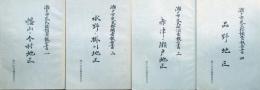 瀬戸市民俗調査報告書 一
幡山・今村地区
瀬戸市民俗調査報告書 二
水野・掛川地区
瀬戸市民俗調査報告書 三
赤津・瀬戸地区
瀬戸市民俗調査報告書 四
品野地区